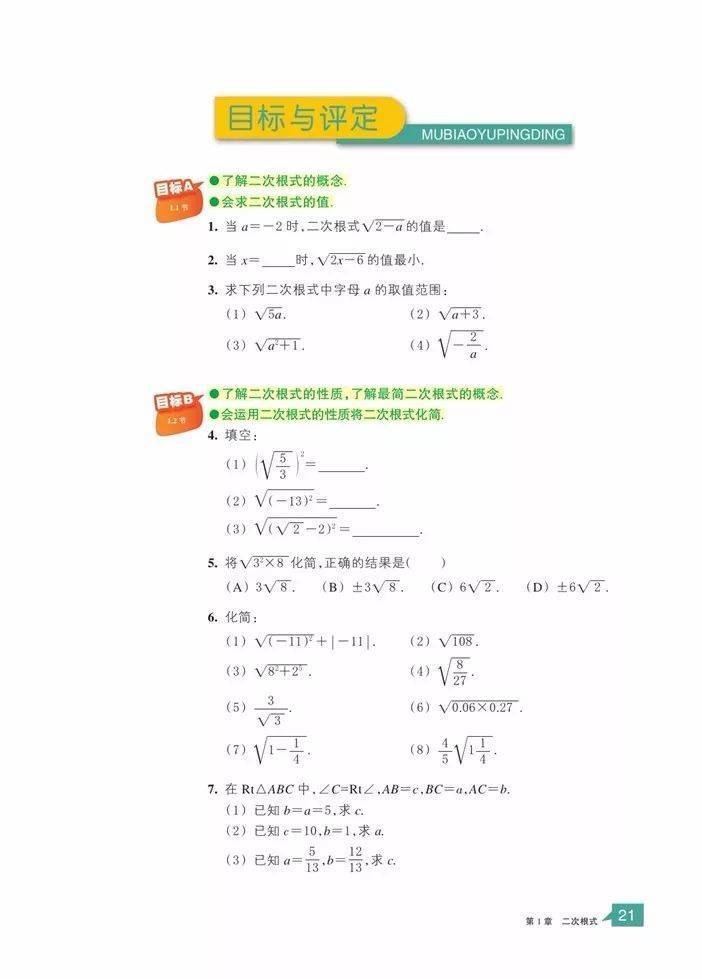 目标与评定
MUBIAOYUPINGDING
目标A
1.1 节
●了解二次根式的概念.
●会求二次根式的值.
1. 当 a=-2 时,二次根式√(2-a)的值是____.
2. 当 x=____时,√(2x-6)的值最小.
3. 求下列二次根式中字母 a 的取值范围:
(1) √(5a). (2) √(a+3).
(3) √(a²+1). (4) √(-2/a).
目标B
1.2 节
●了解二次根式的性质,了解最简二次根式的概念.
●会运用二次根式的性质将二次根式化简.
4. 填空:
(1) (√(5/3))²=______.
(2) √((-13)²)=______.
(3) √((√2-2)²)=________.
5. 将√(3²×8)化简,正确的结果是( )
(A) 3√8. (B) ±3√8. (C) 6√2. (D) ±6√2.
6. 化简:
(1) √((-11)²)+|-11|. (2) √108.
(3) √(8²+2⁵). (4) √(8/27).
(5) 3/√3. (6) √(0.06×0.27).
(7) √(1-1/4). (8) 4/5√(1 1/4).
7. 在 Rt△ABC 中,∠C=Rt∠,AB=c,BC=a,AC=b.
(1) 已知 b=a=5,求 c.
(2) 已知 c=10,b=1,求 a.
(3) 已知 a=5/13,b=12/13,求 c.
第 1 章 二次根式 21